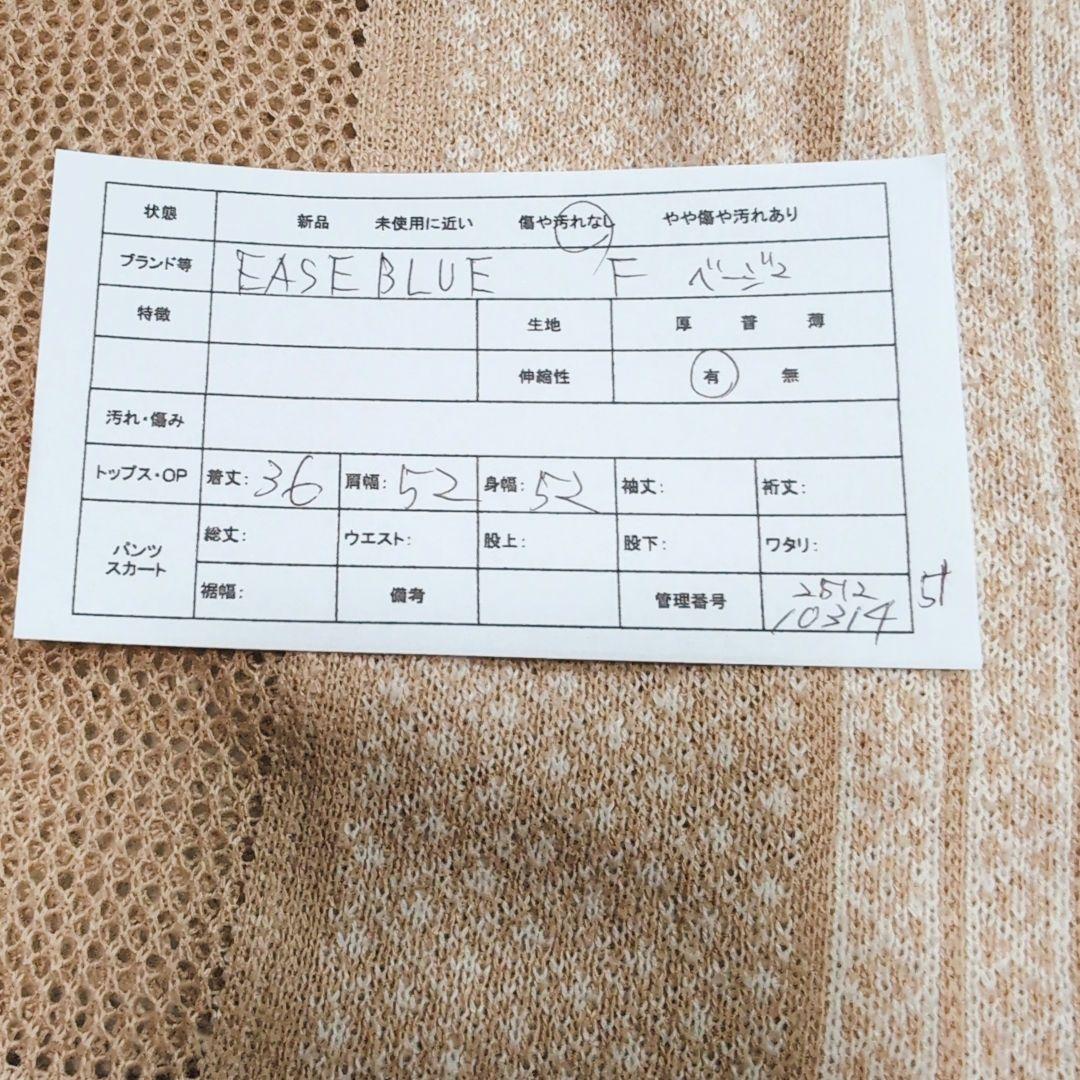 状態 新品 未使用に近い 傷や汚れなし やや傷や汚れあり
ブランド等 EASE BLUE F ベージュ
特徴 生地 厚 普 薄
伸縮性 有 無
汚れ・傷み
トップス・OP 着丈: 36 肩幅: 52 身幅: 52 袖丈: 裄丈:
パンツ スカート 総丈: ウエスト: 股上: 股下: ワタリ:
裾幅: 備考 管理番号 2512
10314